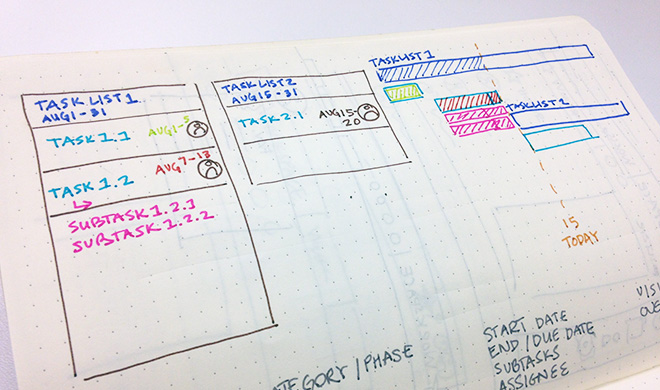 TASK LIST 1
AUG 1-31
TASK 1.1 AUG 1-5
TASK 1.2 AUG 7-13
SUBTASK 1.2.1
SUBTASK 1.2.2
TASK LIST 2
AUG 15-31
TASK 2.1 AUG 15-
20
TASK LIST 1
TASK LIST 2
15
TODAY
/ PHASE
START DATE
END / DUE DATE
SUBTASKS
ASSIGNEE